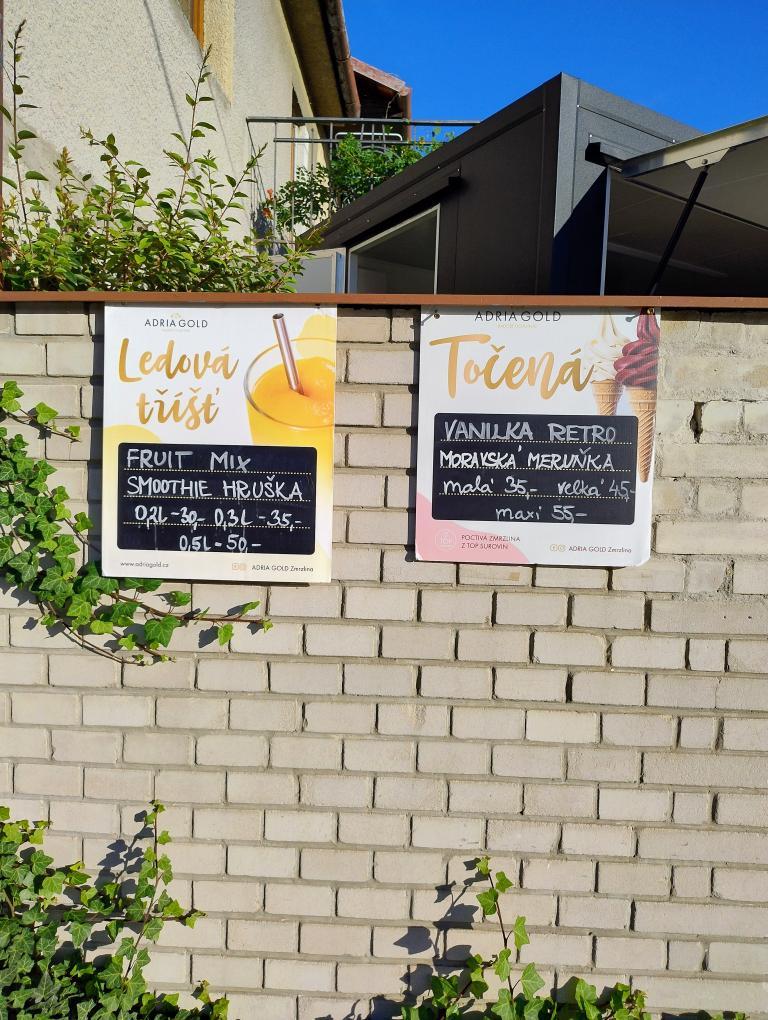 ADRIA GOLD
Ledová
tříšť
FRUIT MIX
SMOOTHIE HRUŠKA
0,2L-30,- 0,3L-35,-
0,5L-50,-
www.adriagold.cz
ADRIA GOLD Zmrzlina
ADRIA GOLD
Točená
VANILKA RETRO
MORAVSKÁ MERUŇKA
malá 35,- velká 45,-
maxi 55,-
POCTIVÁ ZMRZLINA
Z TOP SUROVIN
ADRIA GOLD Zmrzlina